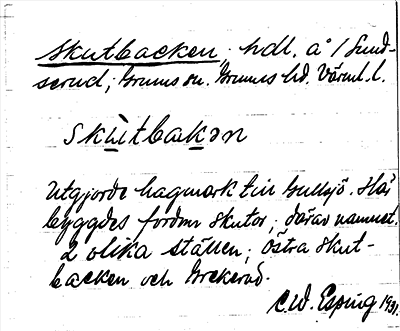 Skutbacken, hdl. å 1 Sund-
serud, Grums sn. Grums hd. Värml. l.
skùtbakən
Utgjorde hagmark till Gullsjö. Här
byggdes fordom skutor, därav namnet.
2 olika ställen; Östra Skut-
backen och
C.W. Esping 1931.